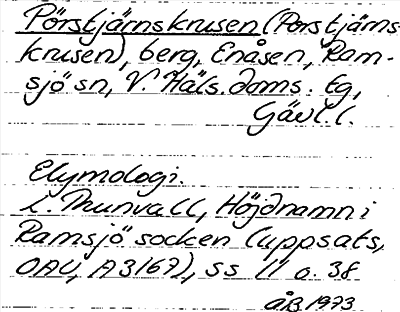 Pörstjärnskrusen (Porstjärns-
krusen), berg, Enåsen, Ram-
sjö sn, V. Häls. doms. Eg,
Gävl. l.
Etymologi.
L. Thunvall, Höjdnamn i
Ramsjö socken (uppsats,
OAU, A 3167), ss 11 o. 38
ÅB 1973